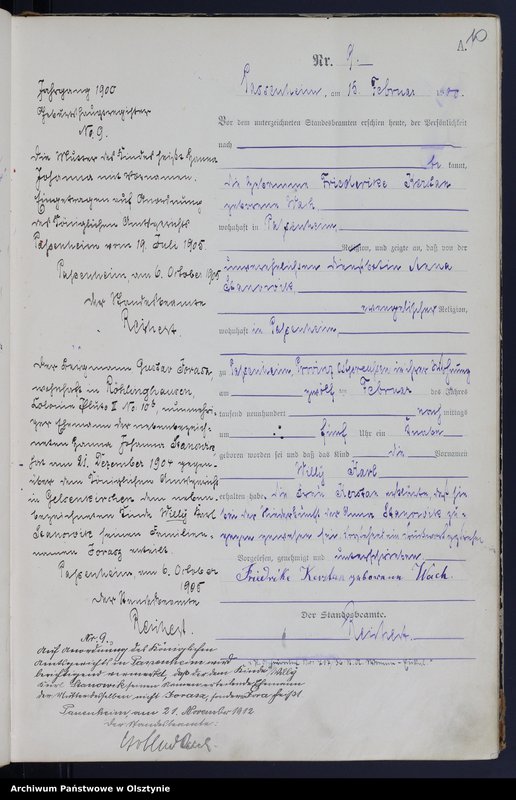 A. 10
Nr. 9.
Passenheim, am 15. Februar 1900.
Vor dem unterzeichneten Standesbeamten erschien heute, der Persönlichkeit
nach
be kannt,
die Hebamme Friederike Kerstan
geborene Wach
wohnhaft in Passenheim,
Religion, und zeigte an, daß von der
unverehelichten Dienstbotin Anna
Stanowik
evangelischer Religion,
wohnhaft in Passenheim,
zu Passenheim, Provinz Ostpreußen in ihrer Wohnung
am zwölf ten Februar des Jahres
tausend neunhundert nach mittags
um fünf Uhr ein Knabe
geboren worden sei und daß das Kind die Vornamen
Willy Karl
erhalten habe. Die Frau Kerstan erklärte, daß sie
bei der Niederkunft der Anna Stanowik zu-
gegen gewesen sei.
Vorgelesen, genehmigt und unterschrieben
Friedrike Kerstan geborene Wach.
Der Standesbeamte.
Reichert.
Jahrgang 1900
Geburtshauptregister
No 9.
Die Mutter des Kindes heißt Anna
Johanna mit Vornamen.
Eingetragen auf Anordnung
des Königlichen Amtsgerichts
Passenheim vom 19. Juli 1905.
Passenheim, am 6. October 1905
Der Standesbeamte
Reichert.
Der Bergmann Gustav Jorass,
wohnhaft in Röhlinghausen,
Colonie Pluto II No. 10b, nunmehri-
ger Ehemann der nebenbezeich-
neten Anna Johanna Stanowik,
hat am 21. Dezember 1904 gegen-
über dem Königlichen Amtsgericht
in Gelsenkirchen dem neben-
bezeichneten Kinde Willy Karl
Stanowik seinen Familien-
namen Jorass erteilt.
Passenheim, am 6. October
1905
Der Standesbeamte
Reichert.
Nr. 9.
Auf Anordnung des Königlichen
Amtsgerichts in Passenheim wird
berichtigend vermerkt, daß der dem Kinde Willy
Karl Stanowik seinen Namen erteilende Ehemann
der Mutter desselben nicht Jorass, sondern Jora heißt
Passenheim am 21. November 1912
Der Standesbeamte:
Archiwum Państwowe w Olsztynie